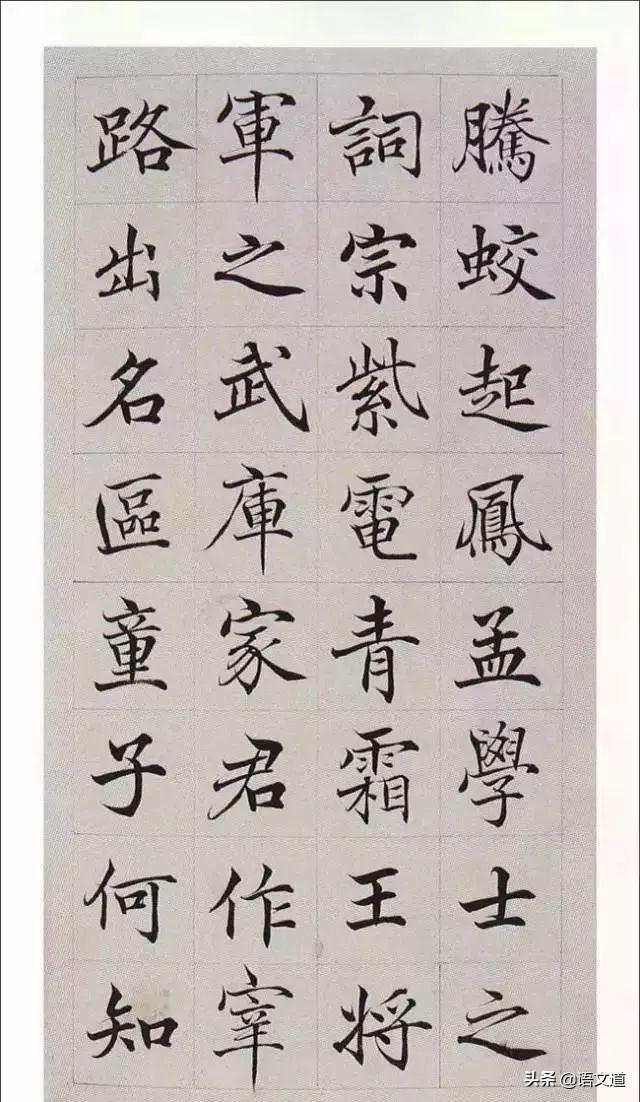 騰蛟起鳳孟學士之
詞宗紫電青霜王將
軍之武庫家君作宰
路出名區童子何知
头条 @语文道